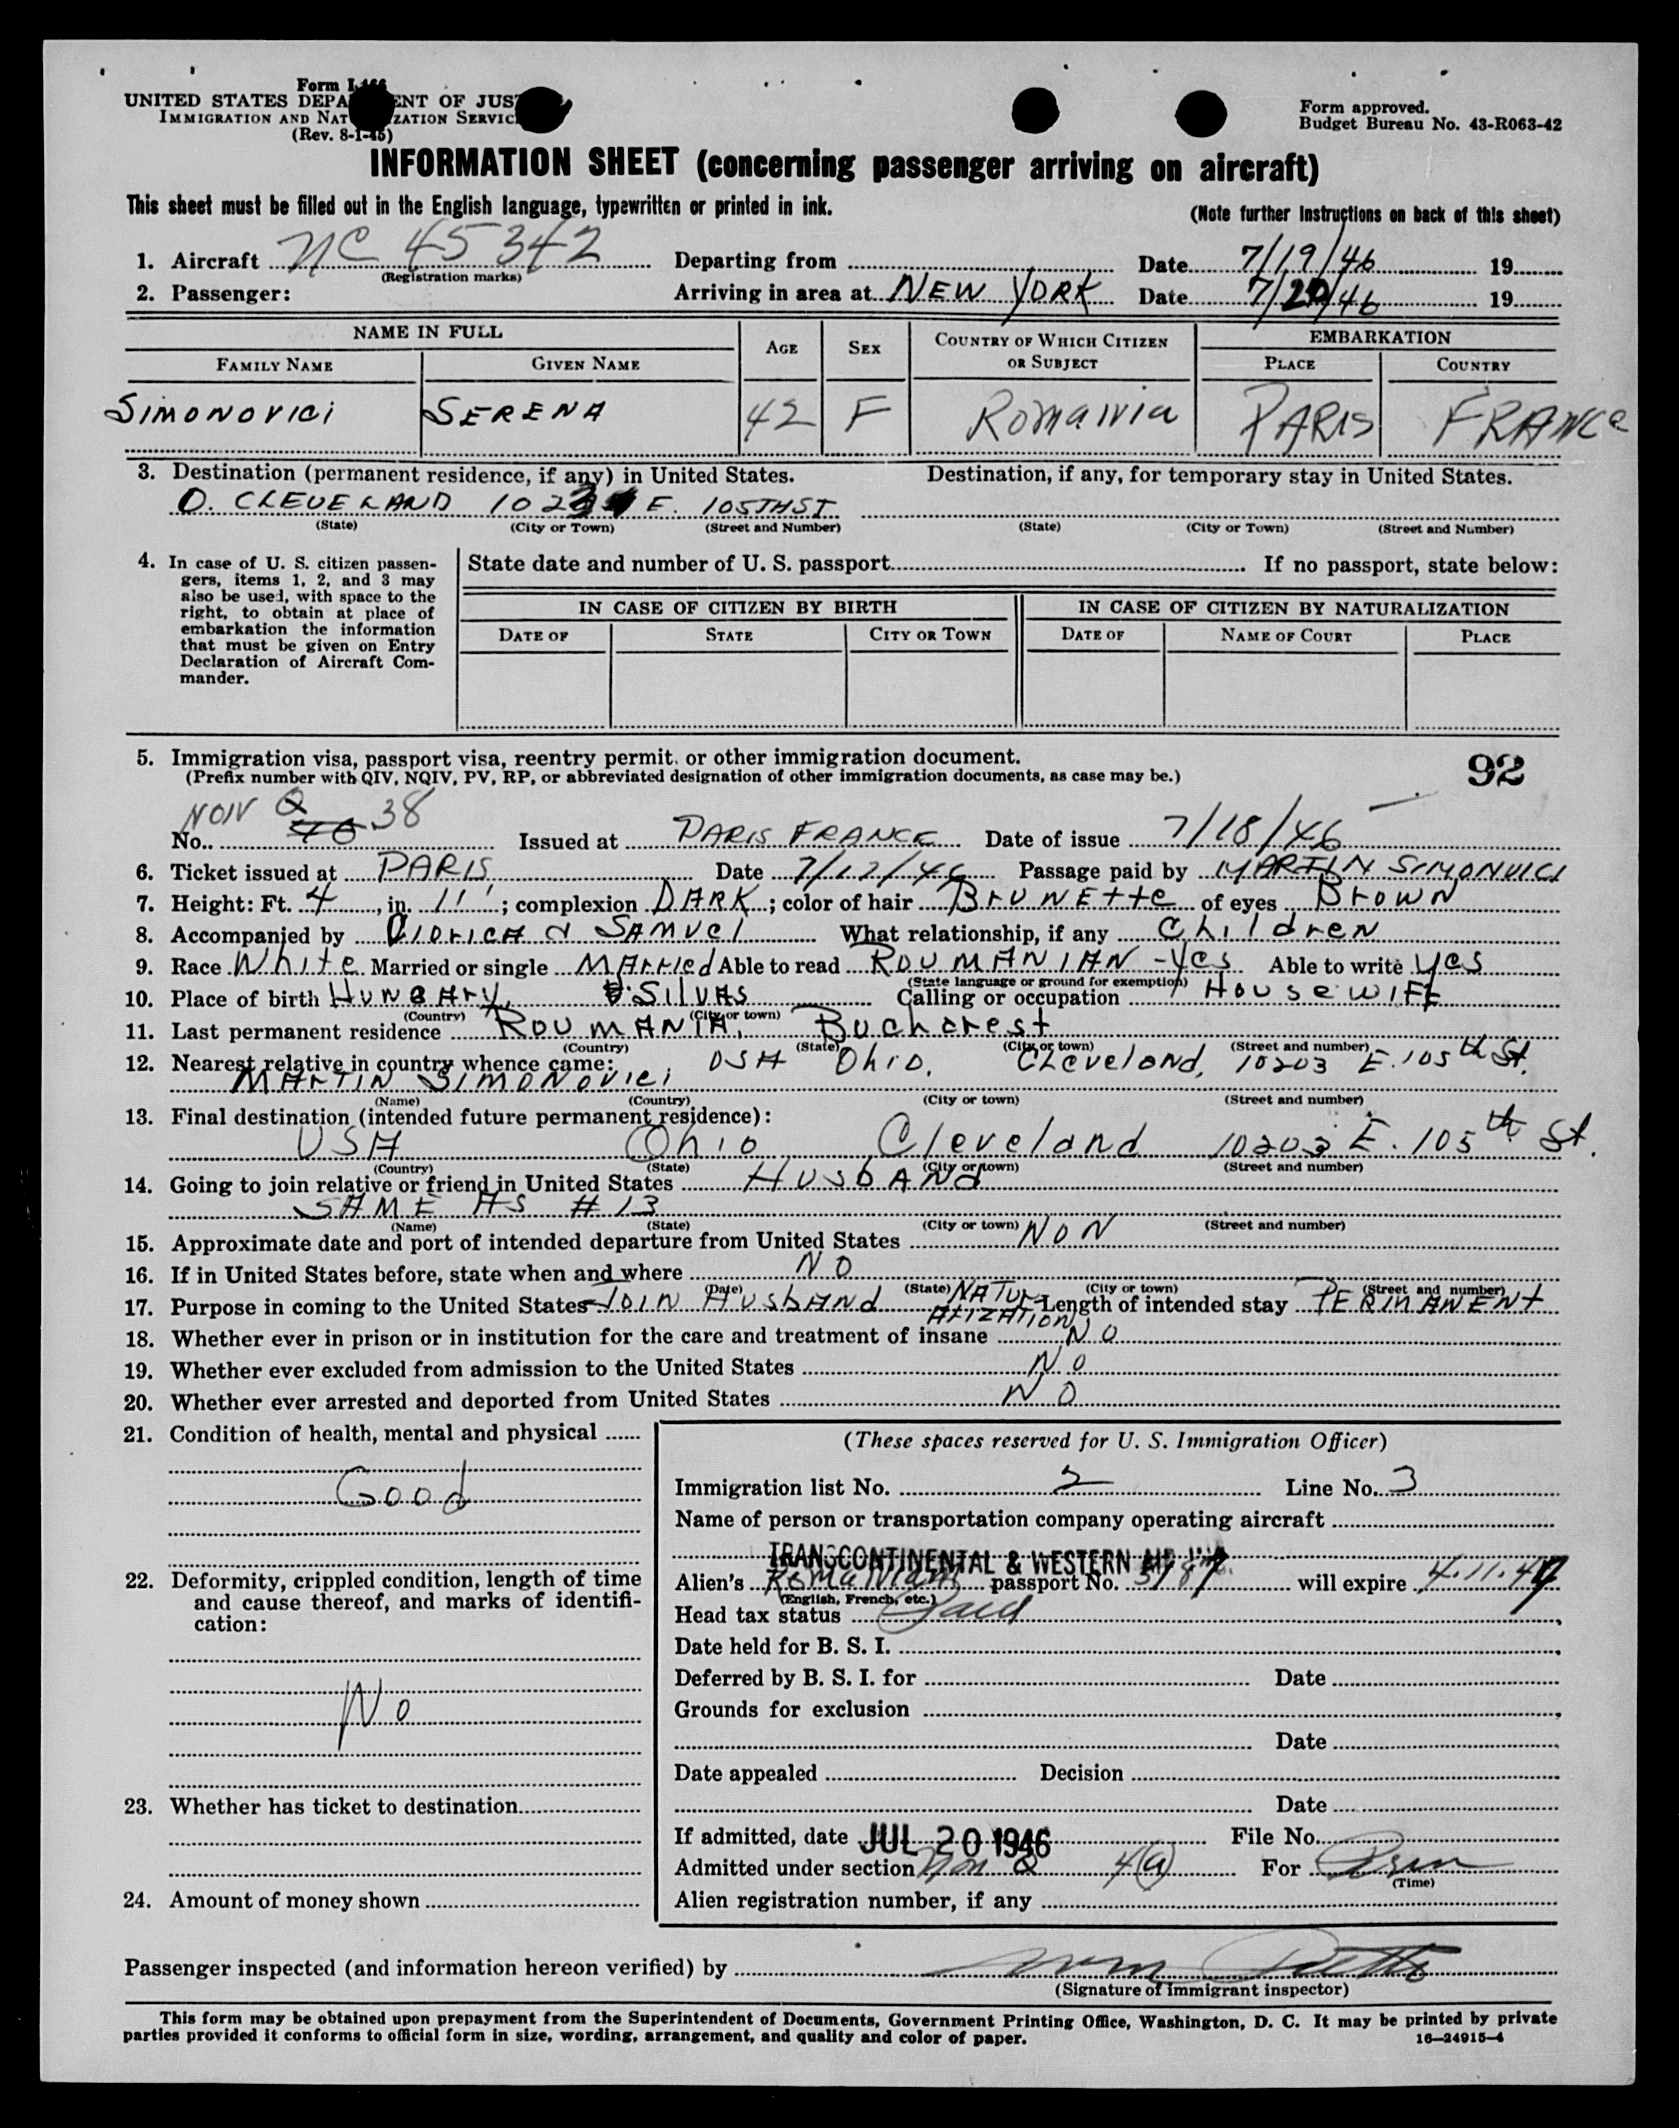 Form I-466
UNITED STATES DEPARTMENT OF JUSTICE
IMMIGRATION AND NATURALIZATION SERVICE
(Rev. 8-1-45)
Form approved.
Budget Bureau No. 43-R063-42
INFORMATION SHEET (concerning passenger arriving on aircraft)
This sheet must be filled out in the English language, typewritten or printed in ink.
(Note further instructions on back of this sheet)
1. Aircraft NC 45342 Departing from Date 7/19/46 19
(Registration marks)
2. Passenger: Arriving in area at NEW YORK Date 7/20/46 19
NAME IN FULL AGE SEX COUNTRY OF WHICH CITIZEN OR SUBJECT EMBARKATION
FAMILY NAME GIVEN NAME PLACE COUNTRY
SIMONOVICI SERENA 42 F Romainia PARIS FRANCE
3. Destination (permanent residence, if any) in United States. Destination, if any, for temporary stay in United States.
O. CLEVELAND E. 105THST
(State) (City or Town) (Street and Number) (State) (City or Town) (Street and Number)
4. In case of U. S. citizen passen-
gers, items 1, 2, and 3 may
also be used, with space to the
right, to obtain at place of
embarkation the information
that must be given on Entry
Declaration of Aircraft Com-
mander.
State date and number of U. S. passport If no passport, state below:
IN CASE OF CITIZEN BY BIRTH IN CASE OF CITIZEN BY NATURALIZATION
DATE OF STATE CITY OR TOWN DATE OF NAME OF COURT PLACE
5. Immigration visa, passport visa, reentry permit, or other immigration document.
(Prefix number with QIV, NQIV, PV, RP, or abbreviated designation of other immigration documents, as case may be.)
92
NOIV Q 38
No. Issued at PARIS FRANCE Date of issue 7/18/46
6. Ticket issued at PARIS Date 7/17/46 Passage paid by MARTIN SIMONVICI
7. Height: Ft. 4, in. 11'; complexion DARK; color of hair BRUNETTE of eyes BROWN
8. Accompanied by VIORICA & SAMUEL What relationship, if any Children
9. Race White Married or single MARRIED Able to read ROUMANIAN - Yes Able to write Yes
(State language or ground for exemption)
10. Place of birth HUNGARY, SILVAS Calling or occupation HOUSEWIFE
(Country) (City or town)
11. Last permanent residence ROUMANIA, Bucharest
(Country) (State) (City or town) (Street and number)
12. Nearest relative in country whence came: USA Ohio, Cleveland, 10203 E. 105th St.
MARTIN SIMONOVICI
(Name) (Country) (City or town) (Street and number)
13. Final destination (intended future permanent residence):
USA Ohio Cleveland 10203 E. 105th St.
(Country) (State) (City or town) (Street and number)
14. Going to join relative or friend in United States HUSBAND
SAME AS # 13
(Name) (State) (City or town) (Street and number)
15. Approximate date and port of intended departure from United States NON
16. If in United States before, state when and where NO
(Date) (State) (City or town) (Street and number)
17. Purpose in coming to the United States JOIN HUSBAND NATURALIZATION Length of intended stay PERMANENT
18. Whether ever in prison or in institution for the care and treatment of insane NO
19. Whether ever excluded from admission to the United States NO
20. Whether ever arrested and deported from United States NO
21. Condition of health, mental and physical
Good
22. Deformity, crippled condition, length of time
and cause thereof, and marks of identifi-
cation:
No
23. Whether has ticket to destination
24. Amount of money shown
(These spaces reserved for U. S. Immigration Officer)
Immigration list No. 2 Line No. 3
Name of person or transportation company operating aircraft
TRANSCONTINENTAL & WESTERN AIR INC
Alien's Romainian passport No. will expire 4.11.47
(English, French, etc.)
Head tax status Paid
Date held for B. S. I.
Deferred by B. S. I. for Date
Grounds for exclusion
Date
Date appealed Decision
Date
If admitted, date JUL 20 1946 File No.
Admitted under section Non Q 4(a) For Perm
(Time)
Alien registration number, if any
Passenger inspected (and information hereon verified) by
(Signature of Immigrant inspector)
This form may be obtained upon prepayment from the Superintendent of Documents, Government Printing Office, Washington, D. C. It may be printed by private
parties provided it conforms to official form in size, wording, arrangement, and quality and color of paper.
16—24915-4